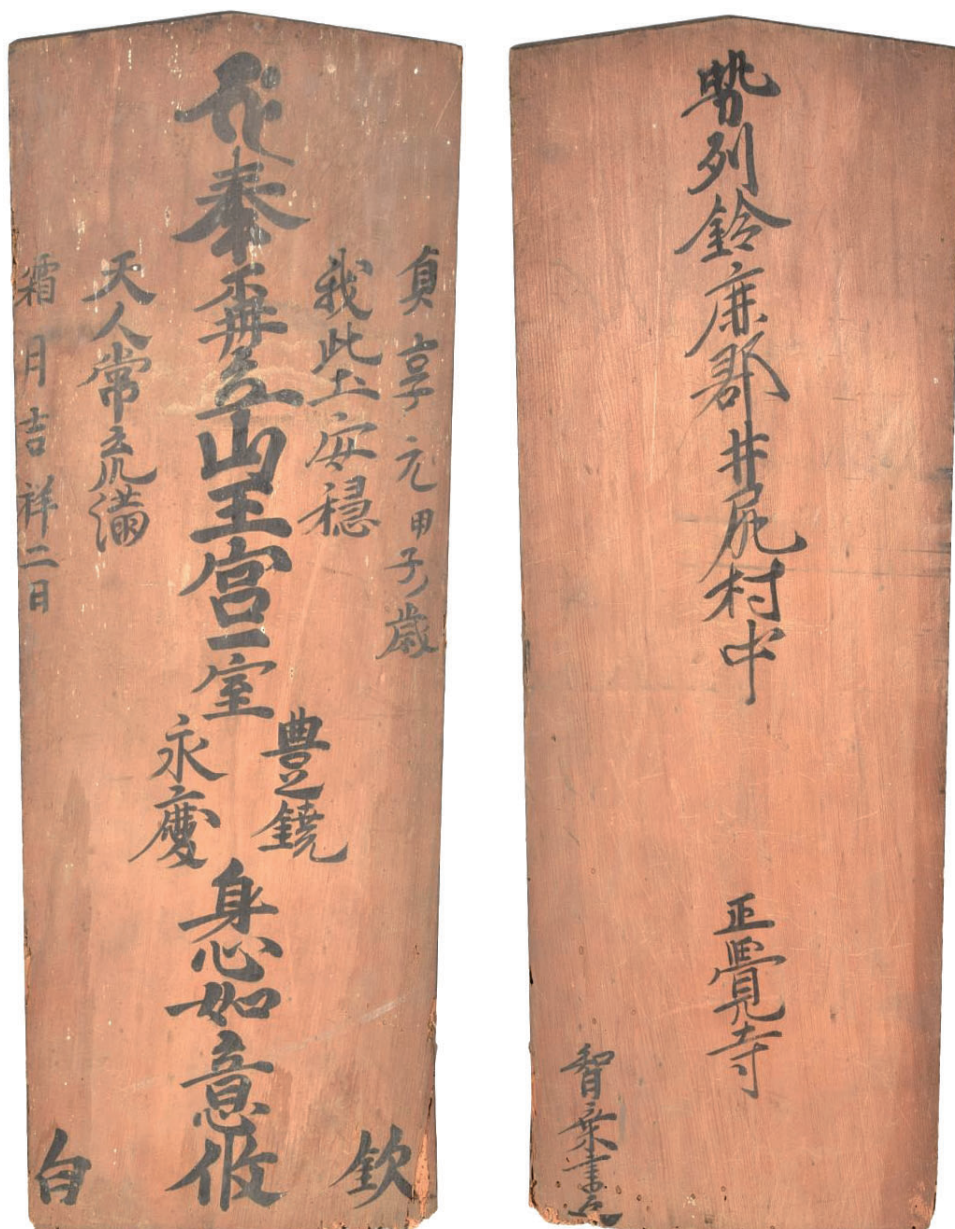 貞享元甲子歳
我此土安穏
奉再立山王宮一室
豊饒
永慶
身心如意攸
欽
白
天人常充満
霜月吉祥二日
勢列鈴鹿郡井尻村中
正覺寺
智書之